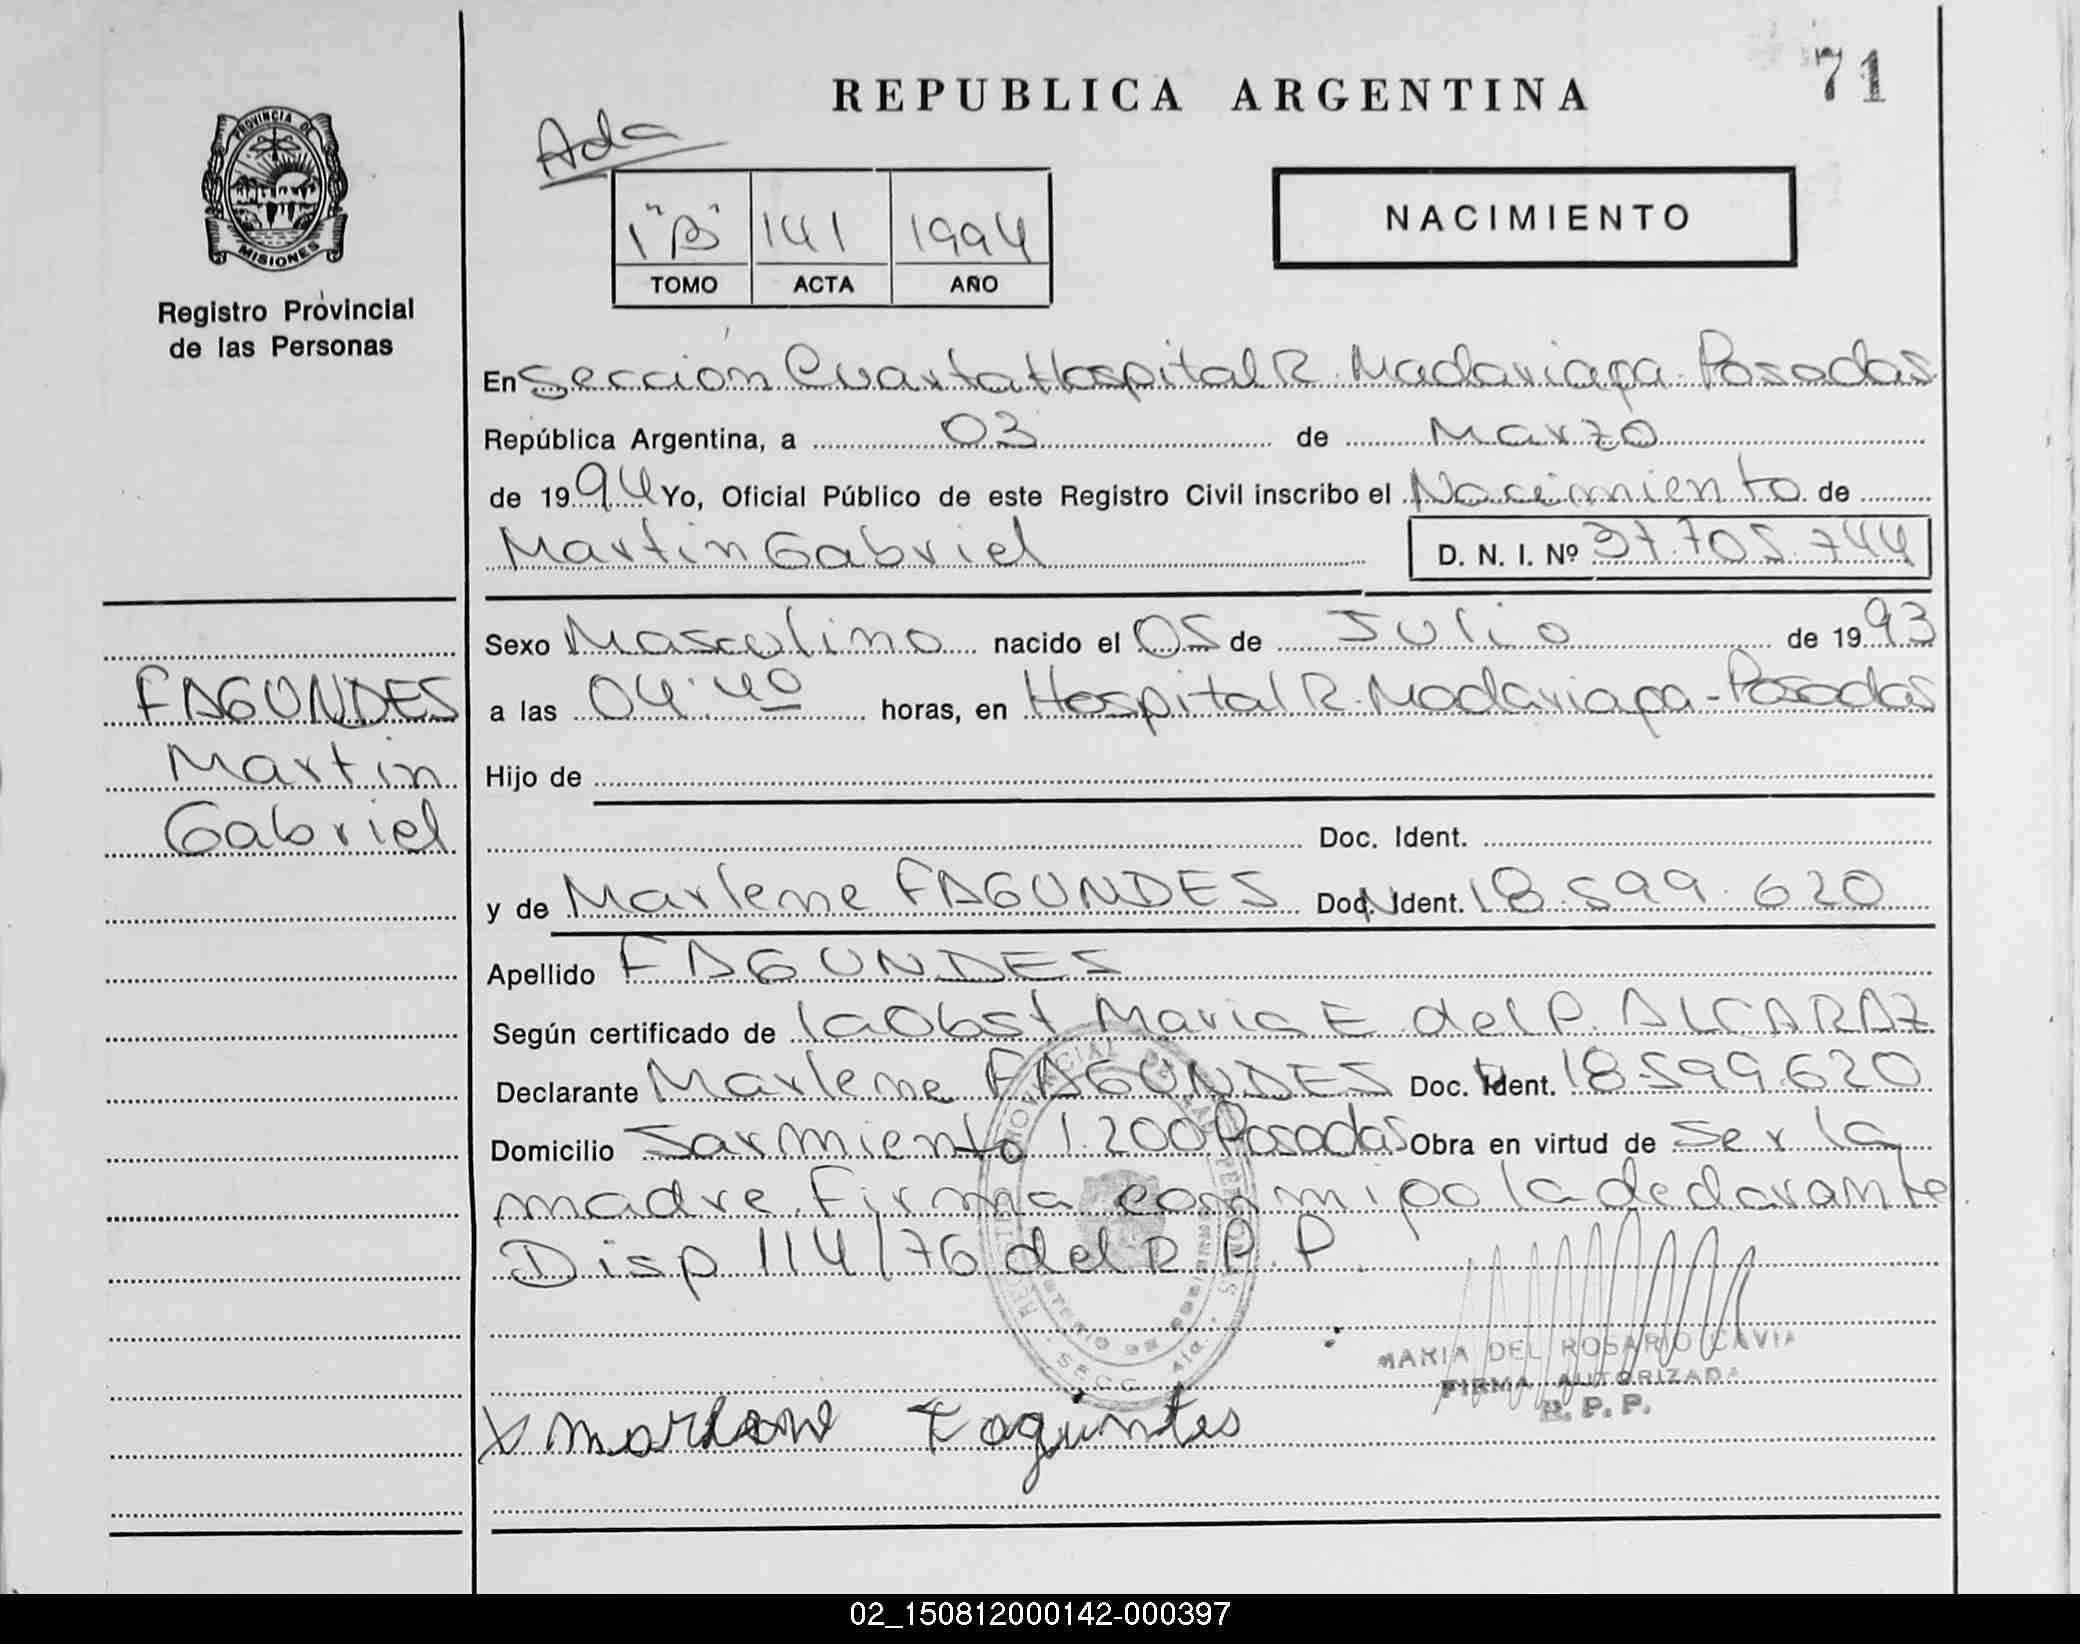 71
REPUBLICA ARGENTINA
Ada
PROVINCIA DE
MISIONES
1 "B" 141 1994
TOMO ACTA AÑO
NACIMIENTO
Registro Provincial
de las Personas
En Sección Cuarta Hospital R. Madariaga - Posadas
República Argentina, a 03 de Marzo
de 1994 Yo, Oficial Público de este Registro Civil inscribo el Nacimiento de
Martin Gabriel D. N. I. Nº 37.705.744
Sexo Masculino nacido el 05 de Julio de 1993
FAGUNDES
Martin
Gabriel
a las 04:40 horas, en Hospital R. Madariaga - Posadas
Hijo de
Doc. Ident.
y de Marlene FAGUNDES Doc. Ident. 18.599.620
Apellido FAGUNDES
Según certificado de la Obst Maria E. del P. ALCARAZ
Declarante Marlene FAGUNDES Doc. Ident. 18.599.620
Domicilio Sarmiento 1.200 Posadas Obra en virtud de ser la
madre. Firma conmigo la declarante
Disp 114/76 del R. P. P.
MARIA DEL ROSARIO CAVIA
FIRMA AUTORIZADA
R. P. P.
X Marlene Faguntes
02_150812000142-000397